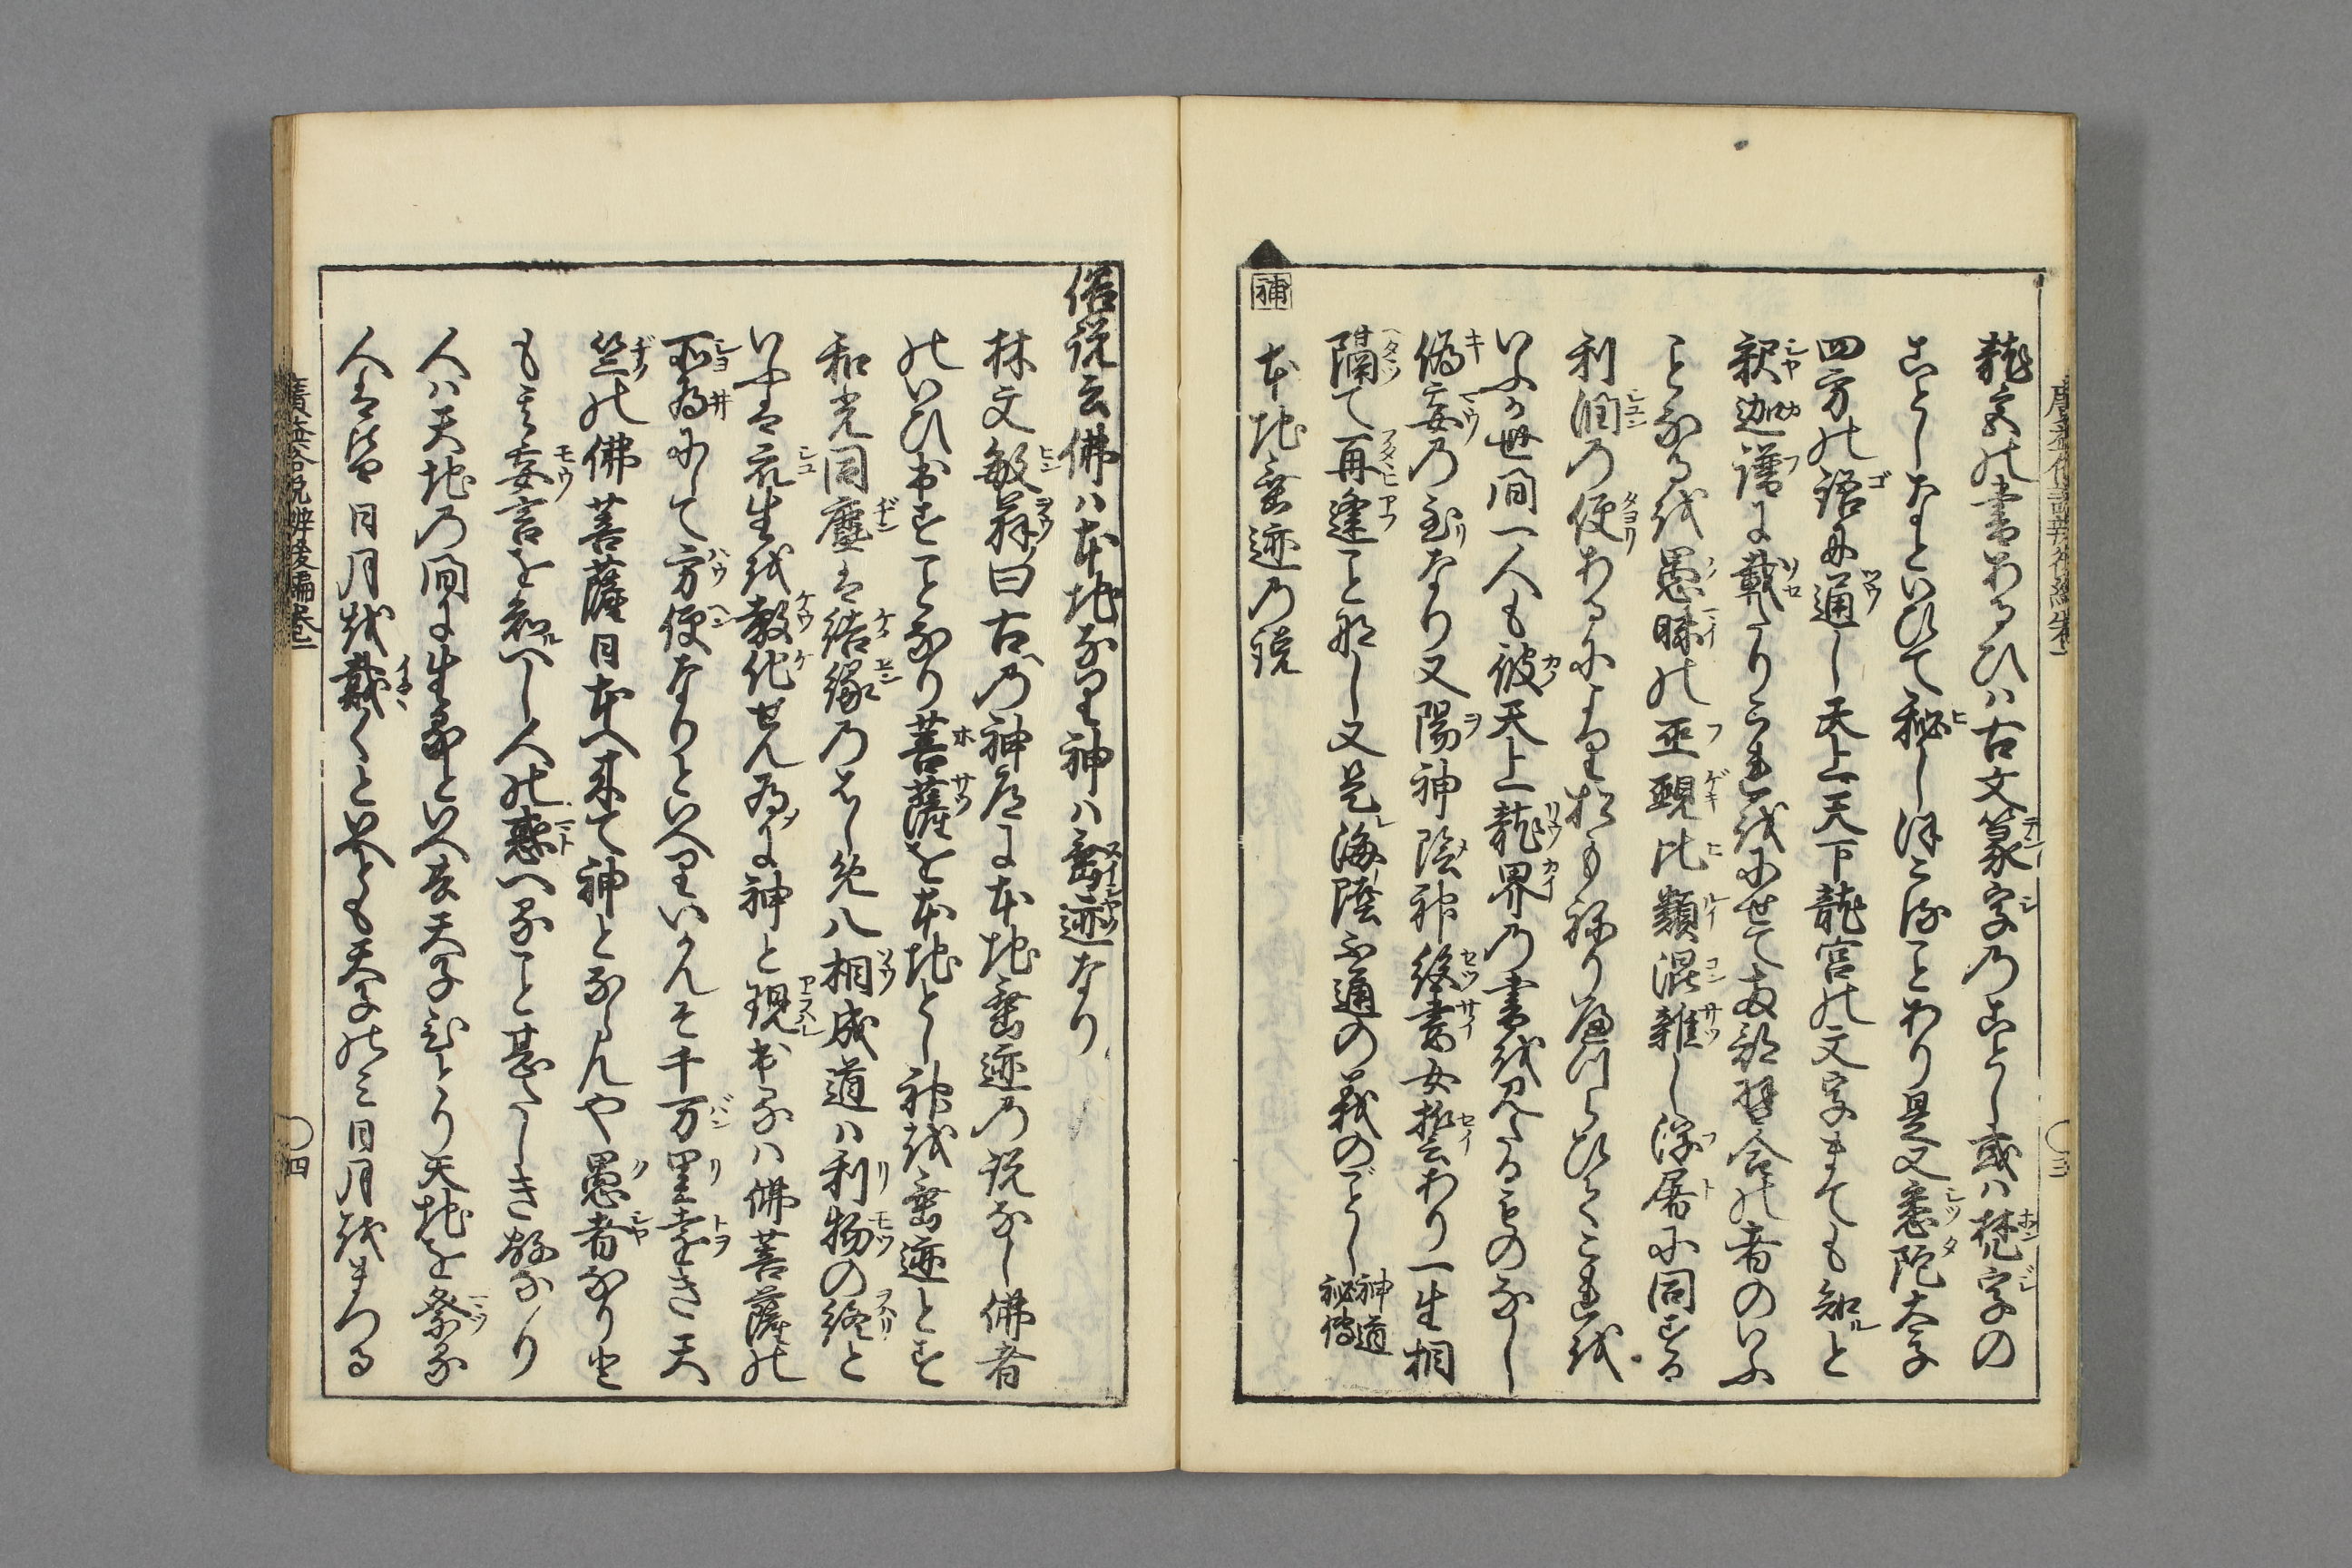 龍宮の書あるひハ古文篆字のことし或ハ梵字の
ことしなといひて秘し侍ることあり是又悉陀太子
四方の語に通し天上天下龍宮の文字まても知と
釈迦譜に載たりこれをにせて両部習合の者のいふ
ことなるを愚昧の巫覡比類混雑し浮屠に同する
利潤の便あるによりおもねりへつらひてこれを
いふか世間一人も彼天上龍界の書を見たるものなし
偽妄の至なり又陽神陰神絶妻女誓あり一生相
隔て再逢こと那し又是海陸不通の義のごとし
神道
秘傳
補
本地垂迹の説
俗説云佛ハ本地なり神ハ垂迹なり
林文敏翁曰古乃神道に本地垂迹の説なし佛者
のいひ出すことなり菩薩を本地とし神を垂迹とす
和光同塵は結縁のはしめ八相成道ハ利物の終と
いふは衆生を教化せん為に神と現出るハ佛菩薩の
所為にして方便なりといへりいかんそ千万里遠き天
竺の佛菩薩日本へ来て神とならんや愚者なりと
も其妄言を知へし人の惑へること甚しき故なり
人ハ天地の間に生るといへ共天子ひとり天地を祭る
人は皆日月を戴くといへとも天子のミ日月をまつる
廣益俗説辨後編巻一
四